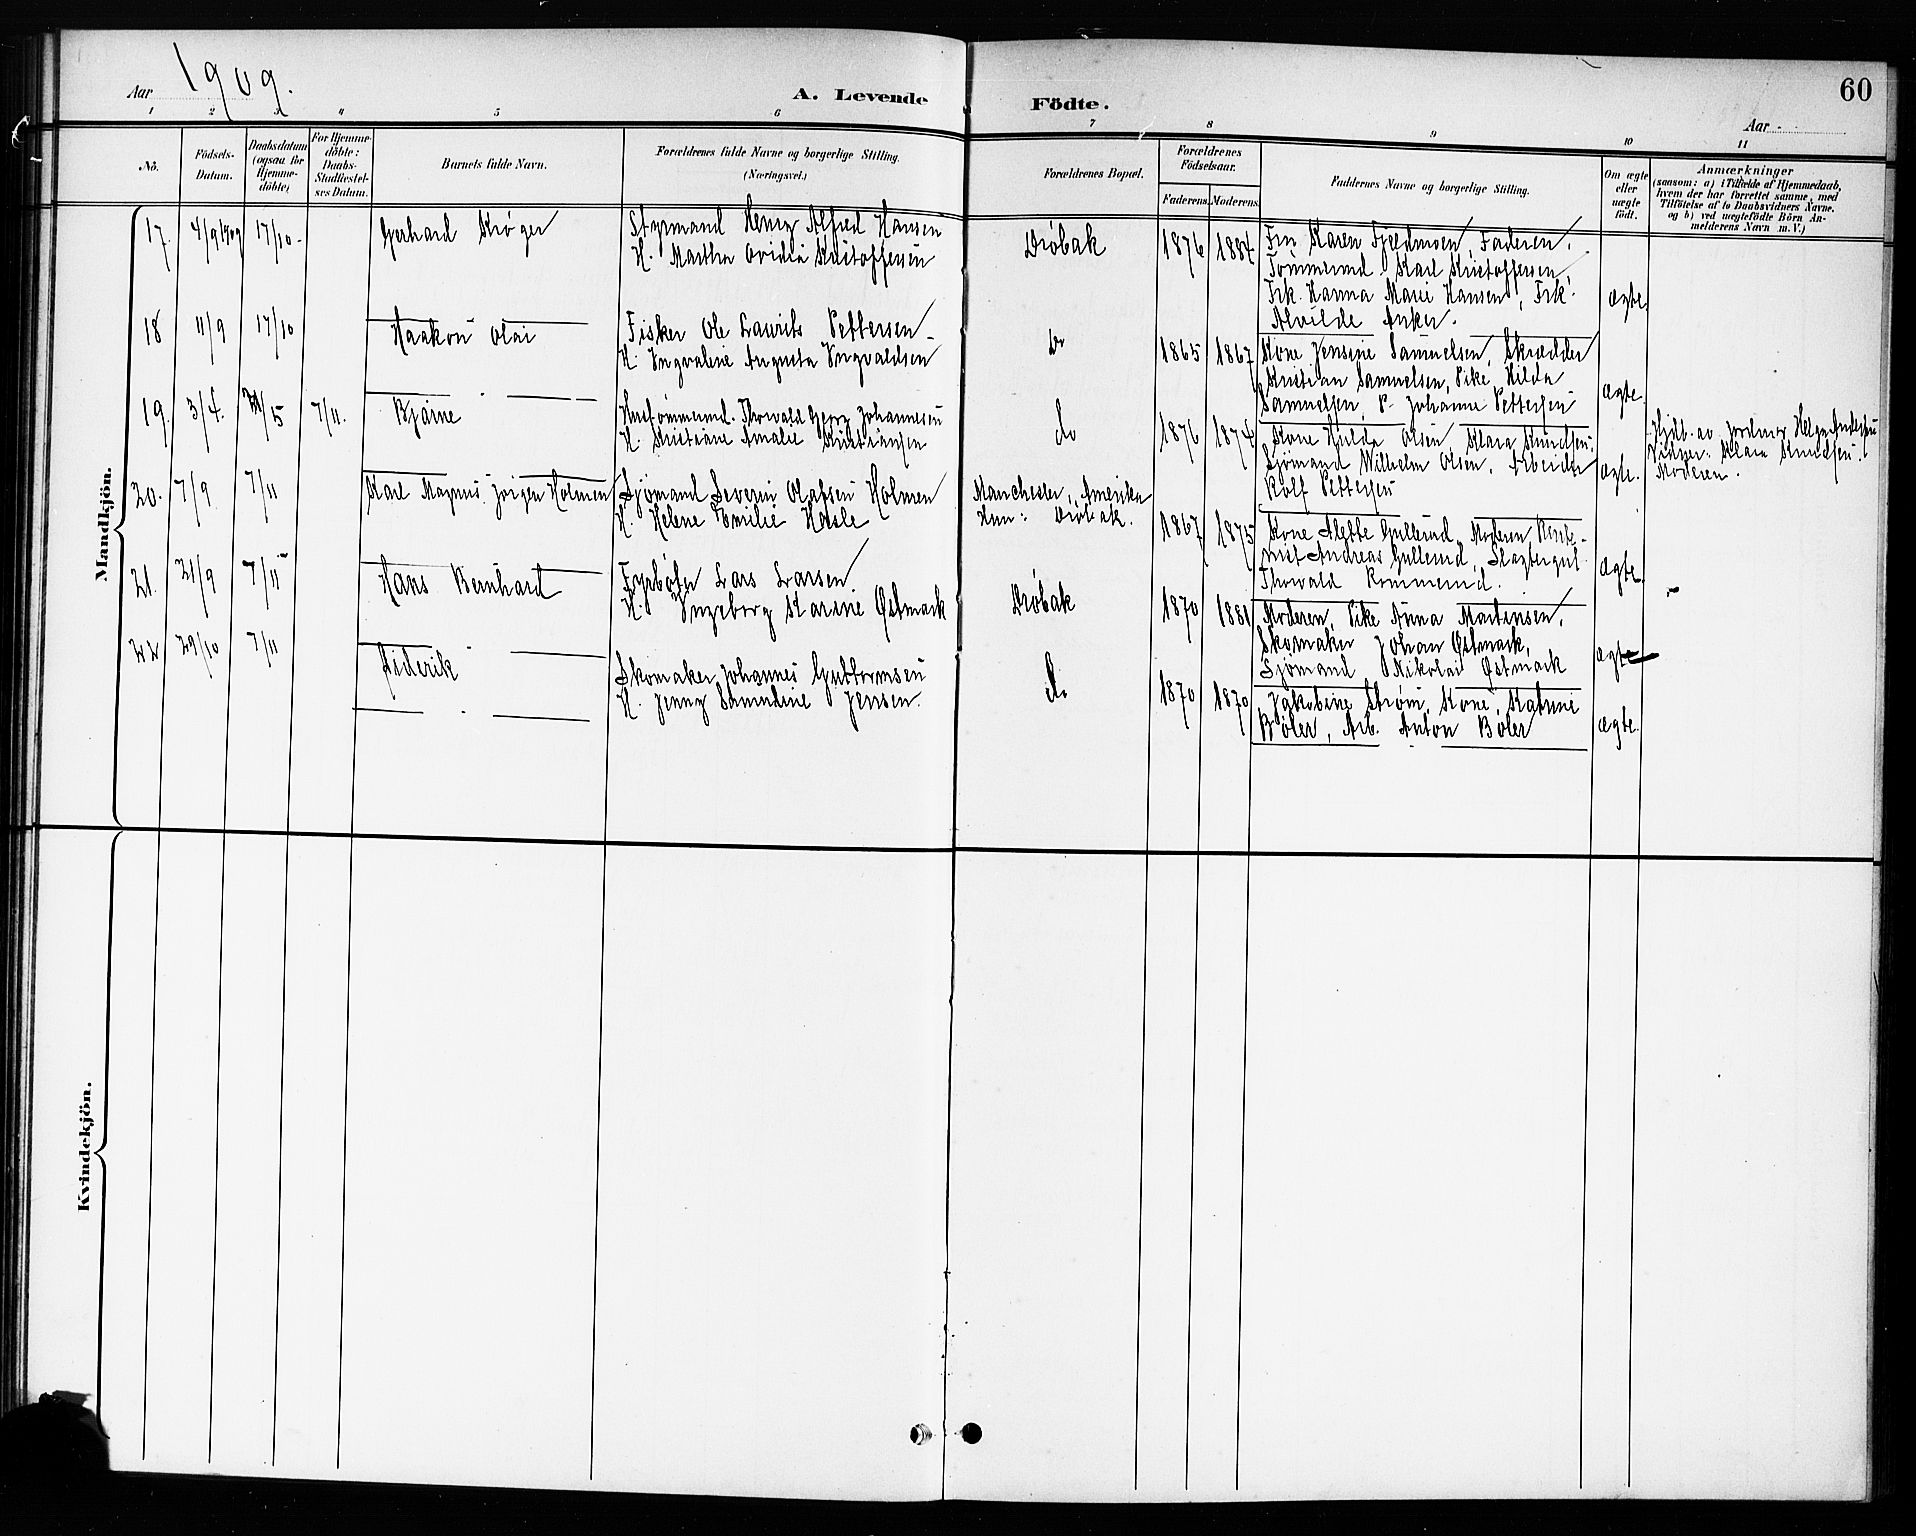 Aar 1909.
A. Levende Födte.
60
Aar
1 2 3 4 5 6 7 8 9 10 11
No.
Födsels-Datum.
Daabsdatum (ogsaa for Hjemme-döbte)
For Hjemme-döbte: Daabs-Stadfæstel-ses Datum.
Barnets fulde Navn.
Forældrenes fulde Navne og borgerlige Stilling. (Næringsvei.)
Forældrenes Bopæl.
Forældrenes Födselsaar.
Faderens. Moderens.
Faddernes Navne og borgerlige Stilling.
Om ægte eller uægte födt.
Anmærkninger
(saasom: a) i Tilfælde af Hjemmedaab,
hvem der har forrettet samme, med
Tilföielse af to Daabsvidners Navne.
og b) ved uægtefödte Börn An-
melderens Navn m. V.)
Mandkjön.
17. 4/9 1909 17/10 - Gerhard Krøger
Styrmand Henry Alfred Hansen
H. Martha Ovidia Kristoffersen
Drøbak 1876 1884
Fru Karen Fjeldmoen, Faderen,
Tømmermd Karl Kristoffersen,
Frk. Hanna Marie Hansen, Frk.
Alvilde Anker.
ægte.
18 11/9 17/10 Haakon Olai
Fisker Ole Laurits Pettersen
H. Ingvaline Augusta Ingvaldsen
Do 1865 1867
Kone Jensine Samuelsen, Skrædder
Kristian Samuelsen, Pike Hilda
Samuelsen, P. Johanne Pettersen
ægte.
19. 3/4. /5 7/11. Bjarne
Hustømmermd. Thorvald Georg Johannesen
H. Kristiane Amalie Kristiansen
do 1876 1874
Kone Hulda Olsen, Klara Knudsen,
Sjømand Wilhelm Olsen, Arbeider
Rolf Pettersen
ægte.
Hjdb. av Jordmor Helga Andersen
Vidner: Klara Knudsen.
Moderen.
20. 7/9. 7/11 Karl Magnus Jørgen Holmen
Sjømand Severin Olafsen Holmen
H. Helene Emilie Hasle
Manchester, Amerika
Hun: Drøbak.
1867 1875
Kone Alette Gullerud, Moderen, Rente-
nist Andreas Gullerud, Slagtergut
Thorvald Rommerud.
ægte.
21. 21/9 7/11 Hans Bernhard
Fyrbøter Lars Larsen
H. Ingeborg Karine Østmark
Drøbak 1870 1881
Moderen, Pike Anna Martinsen,
Skomaker Johan Østmark,
Sjømand Nikolai Østmark
ægte
22 29/10 7/11 Friderik
Skomaker Johannes Guttormsen
H. Jenny Samuline Jensen.
do 1870 1870
Jakobine Strøm, Kone Katrine
Bøler, Arb. Anton Bøler
ægte.
Kvindekjön.